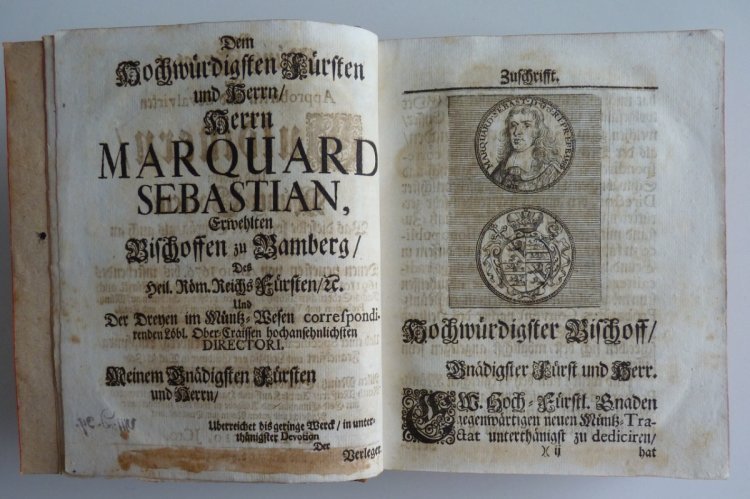 Dem
Hochwürdigsten Fürsten
und Herrn/
Herrn
MARQUARD
SEBASTIAN,
Erwehlten
Bischoffen zu Bamberg/
Des
Heil. Röm. Reichs Fürsten/ ꝛc.
Und
Der Dreyen im Müntz-Wesen correspondi-
renden Löbl. Ober-Craissen hochansehnlichsten
DIRECTORI.
Meinem Gnädigsten Fürsten
und Herrn/
Uberreichet dis geringe Werck/ in unter-
thänigster Devotion
Der
Verleger
Zuschrifft.
Hochwürdigster Bischoff/
Gnädigster Fürst und Herr.
EW. Hoch-Fürstl. Gnaden
gegenwärtigen neuen Müntz-Tra-
ctat unterthänigst zu dediciren/
)( ij
hat